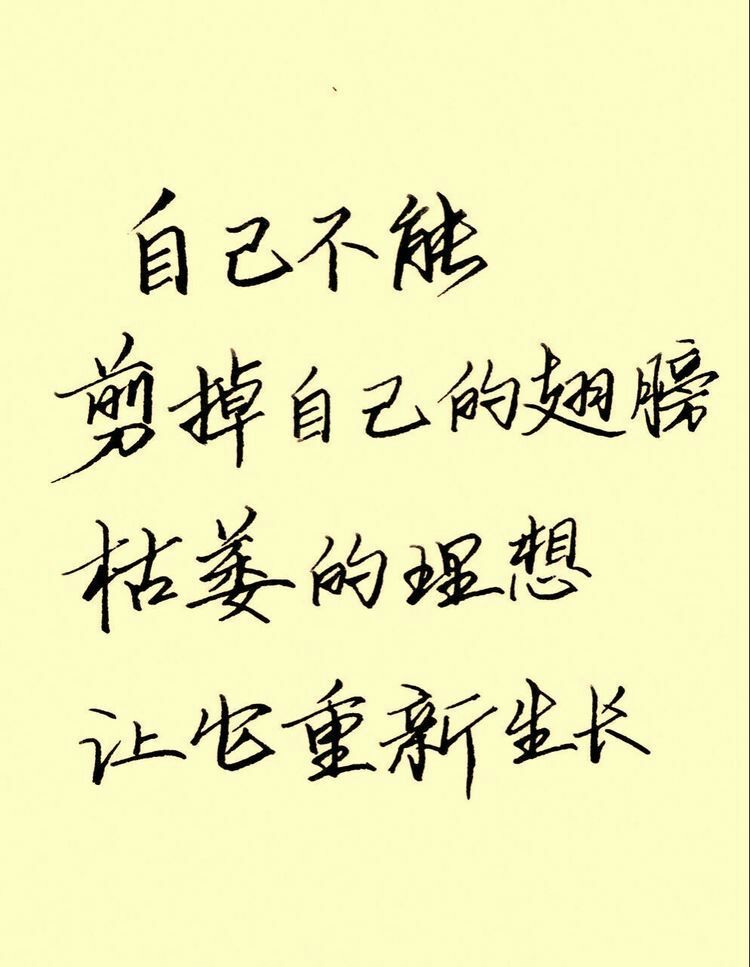 自己不能
剪掉自己的翅膀
枯萎的理想
让它重新生长